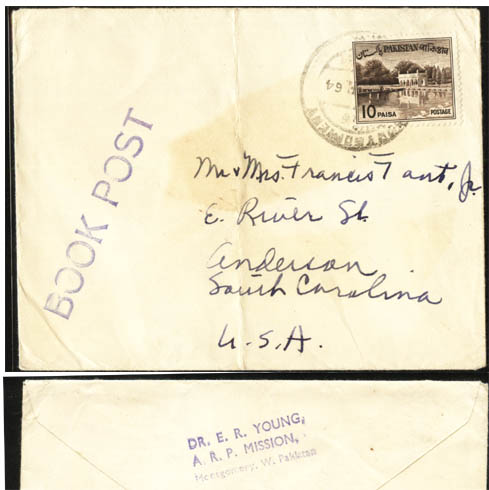 پاکستان PAKISTAN পাকিস্তান
10 PAISA POSTAGE
64
BOOK POST
Mr & Mrs. Francis Tant, Jr.
E. River St.
Anderson
South Carolina
U.S.A.
DR. E. R. YOUNG,
A. R. P. MISSION,
Montgomery, W. Pakistan